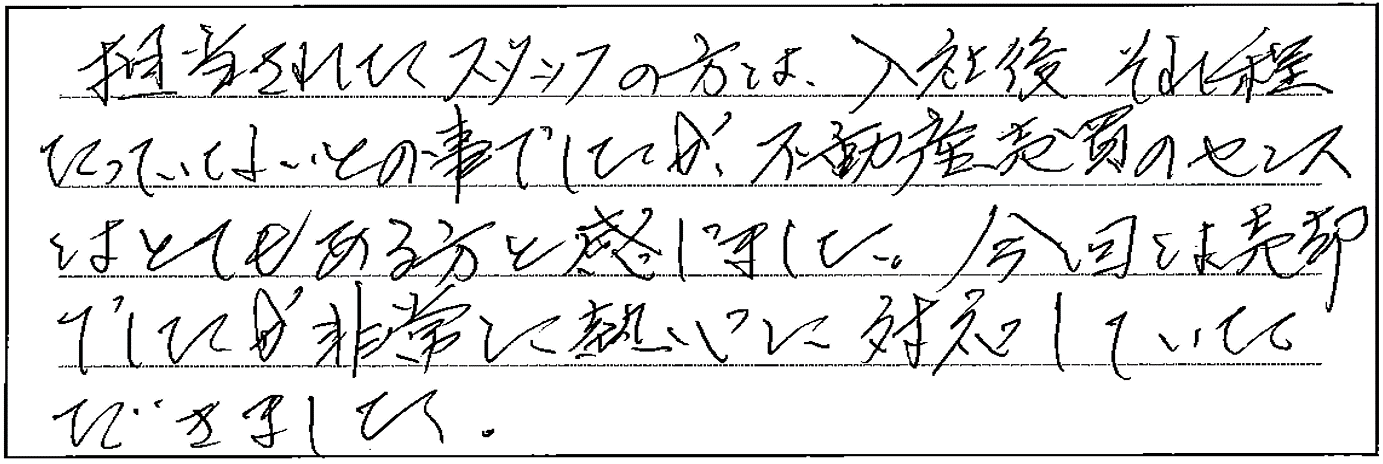 担当されたスタッフの方は、入社後それ程
たっていないとの事でしたが、不動産売買のセンス
はとてもある方と感じました。今回は売却
でしたが非常に熱心に対応していた
だきました。